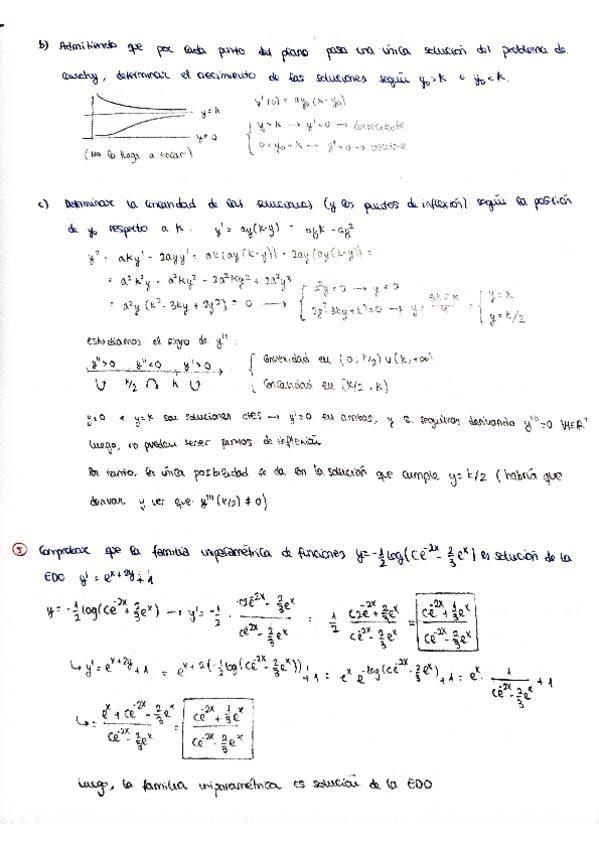 b) Admitiendo que por cada punto del plano pasa una única solución del problema de
cauchy, determinar el crecimiento de las soluciones según y₀>k o y₀<k.
y'(0) = ay₀(k-y₀)
y=k
y=0
(No lo llega a tocar)
y>k → y'<0 → decreciente
0<y₀<k → y'>0 → creciente
c) Determinar la concavidad de las soluciones (y los puntos de inflexión) según la posición
de y₀ respecto a k. y' = ay(k-y) = ayk - ay²
y'' = aky' - 2ayy' = ak(ay(k-y)) - 2ay(ay(k-y)) =
= a²k²y - a²ky² - 2a²ky² + 2a²y³
= a²y (k² - 3ky + 2y²) = 0 → { a²y=0 → y=0
2y²-3ky+k²=0 → y = { y=k
y=k/2
estudiamos el signo de y''
y''>0 y''<0 y''>0
k/2 k
{ Convexidad en (0, k/2) ∪ (k, +∞)
Concavidad en (k/2, k)
y=0 e y=k son soluciones ctes → y'=0 en ambos, y si seguimos derivando
Luego, no pueden tener puntos de inflexión
Por tanto, la única posibilidad se da en la solución que cumple y=k/2 (habría que
derivar y ver que y'''(k/2) ≠ 0)
⑤ Comprobar que la familia uniparamétrica de funciones y=-½log(Ce⁻²ˣ - ⅔eˣ) es solución de la
EDO y' = e^(x+2y) + 1
y = -½ log(ce⁻²ˣ - ⅔eˣ) → y' = -½ · (-2ce⁻²ˣ - ⅔eˣ)/(ce⁻²ˣ - ⅔eˣ) = ½ (2ce⁻²ˣ + ⅔eˣ)/(ce⁻²ˣ - ⅔eˣ) = (ce⁻²ˣ + ⅓eˣ)/(ce⁻²ˣ - ⅔eˣ)
↳ y' = e^(x+2y) + 1 = e^(x+2(-½log(ce⁻²ˣ - ⅔eˣ))) + 1 = eˣ e^(-log(ce⁻²ˣ - ⅔eˣ)) + 1 = eˣ · 1/(ce⁻²ˣ - ⅔eˣ) + 1
↳ = (eˣ + ce⁻²ˣ - ⅔eˣ)/(ce⁻²ˣ - ⅔eˣ) = (ce⁻²ˣ + ⅓eˣ)/(ce⁻²ˣ - ⅔eˣ)
Luego, la familia uniparamétrica es solución de la EDO